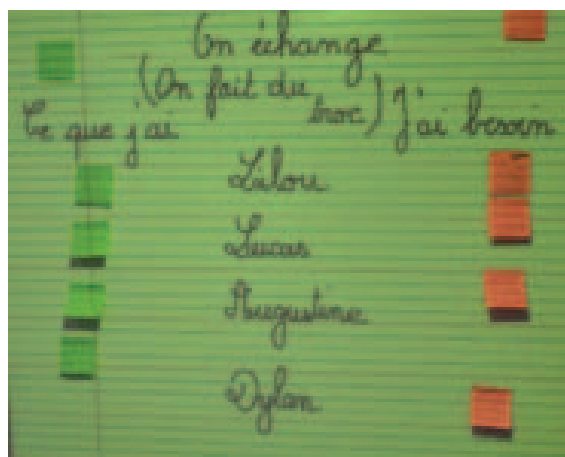 On échange
(On fait du
troc)
Ce que j'ai
J'ai besoin
Lilou
Lucas
Augustine
Dylan